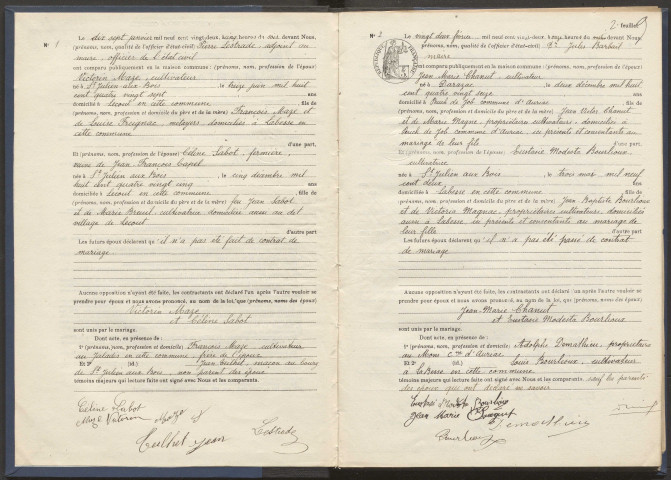 N° 1
Le dix sept janvier mil neuf cent vingt-deux, heures du devant Nous,
(prénoms, nom, qualité de l'officier d'état-civil) Pierre Lestrade, adjoint au
maire, officier de l'état civil
ont comparu publiquement en la maison commune : (prénoms, nom, profession de l'époux)
Victorin Maze, cultivateur
né à St Julien aux Bois, le treize juin mil huit
cent quatre vingt sept ans
domicilié à en cette commune, fils de
(prénoms, nom, profession et domicile du père et de la mère) François Maze et
de Louise, métayers domiciliés à Labesse en
cette commune
d'une part,
Et (prénoms, nom, profession de l'épouse) Céline Labot, fermière,
veuve de Jean François Capel
née à St Julien aux Bois, le cinq décembre mil
huit cent quatre vingt cinq ans
domiciliée à en cette commune, fille de
(prénoms, nom, profession et domicile du père et de la mère) feu Jean Labot
et de Marie, cultivatrice domiciliée avec au dit
village de
d'autre part
Les futurs époux déclarent qu'il n'a pas été fait de contrat de
mariage
Aucune opposition n'ayant été faite, les contractants ont déclaré l'un après l'autre vouloir se
prendre pour époux et nous avons prononcé, au nom de la loi, que (prénoms, noms des époux)
Victorin Maze
et Céline Labot
sont unis par le mariage.
Dont acte, en présence de :
1° (prénoms, nom, profession et domicile) François Maze cultivateur
au en cette commune, frère de l'époux
Et 2° (id.) Jean, maçon au bourg
de St Julien aux Bois, non parent des époux
témoins majeurs qui lecture faite ont signé avec Nous et les comparants.
Céline Labot
Maze Victorin Maze
Jean Lestrade
2e feuillet
N° 2
Le vingt deux février mil neuf cent vingt-deux, heures du devant Nous,
(prénoms, nom, qualité de l'officier d'état-civil) Jules Barbeil
maire
ont comparu publiquement en la maison commune : (prénoms, nom, profession de l'époux)
Jean Marie Chanut cultivateur
né à Darazac, le deux décembre mil huit
cent quatre vingt onze ans
domicilié à de Job commune d'Auriac, fils de
(prénoms, nom, profession et domicile du père et de la mère) Jean Victor Chanut
et de Marie Magne, propriétaires cultivateurs, domiciliés à
de Job commune d'Auriac, ici présents et consentants au
mariage de leur fils d'une part,
Et (prénoms, nom, profession de l'épouse) Eustasie Modeste Bourlioux,
cultivatrice
née à St Julien aux Bois, le trois mars mil neuf
cent deux ans
domiciliée à Labesse en cette commune, fille de
(prénoms, nom, profession et domicile du père et de la mère) Jean Baptiste Bourlioux
et de Victoria Magnac, propriétaires cultivateurs, domiciliés
aussi à Labesse, ici présents et consentants au mariage de
leur fille d'autre part
Les futurs époux déclarent qu'il n'a pas été passé de contrat
de mariage
Aucune opposition n'ayant été faite, les contractants ont déclaré l'un après l'autre vouloir se
prendre pour époux et nous avons prononcé, au nom de la loi, que (prénoms, noms des époux)
Jean-Marie Chanut
et Eustasie Modeste Bourlioux
sont unis par le mariage.
Dont acte, en présence de :
1° (prénoms, nom, profession et domicile) Adolphe, propriétaire
au Cne d'Auriac
Et 2° (id.) Louis Bourlioux, cultivateur
à Labesse en cette commune
témoins majeurs qui lecture faite ont signé avec Nous et les comparants. sauf les parents
des époux qui ont déclaré ne savoir
Eustasie Modeste Bourlioux
Jean Marie Chanut
Bourlioux